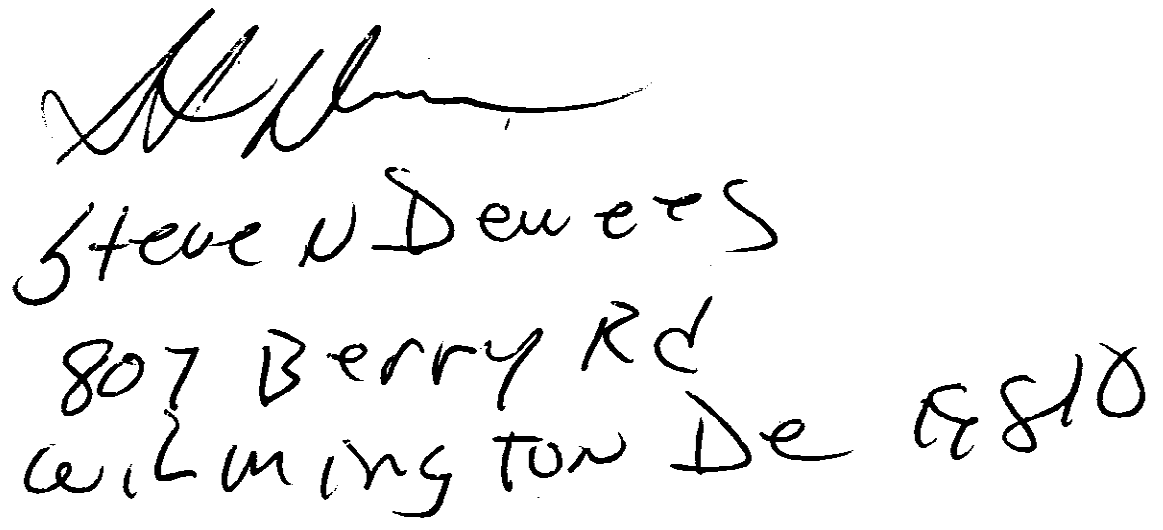 Steve N Dewees
807 Berry Rd
Wilmington De 19810